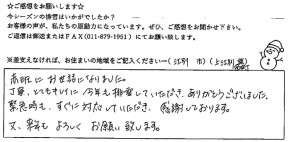 ☆ご感想をお願いします☆
今シーズンの排雪はいかがでしたか？
お客様の声が、私たちの原動力になっています。ぜひ、ご感想をお聞かせ下さい。
ご感想は郵送またはFAX(011-879-1951)にてお願い致します。
※差支えなければ、お住まいの地域をご記入ください→(江別 市)(上江別
お世話になりました。
丁寧、とてもキレイに今年も排雪していただき、ありがとうございました。
緊急時も、すぐに対応していただき、感謝しております。
又、来年もよろしくお願い致します。